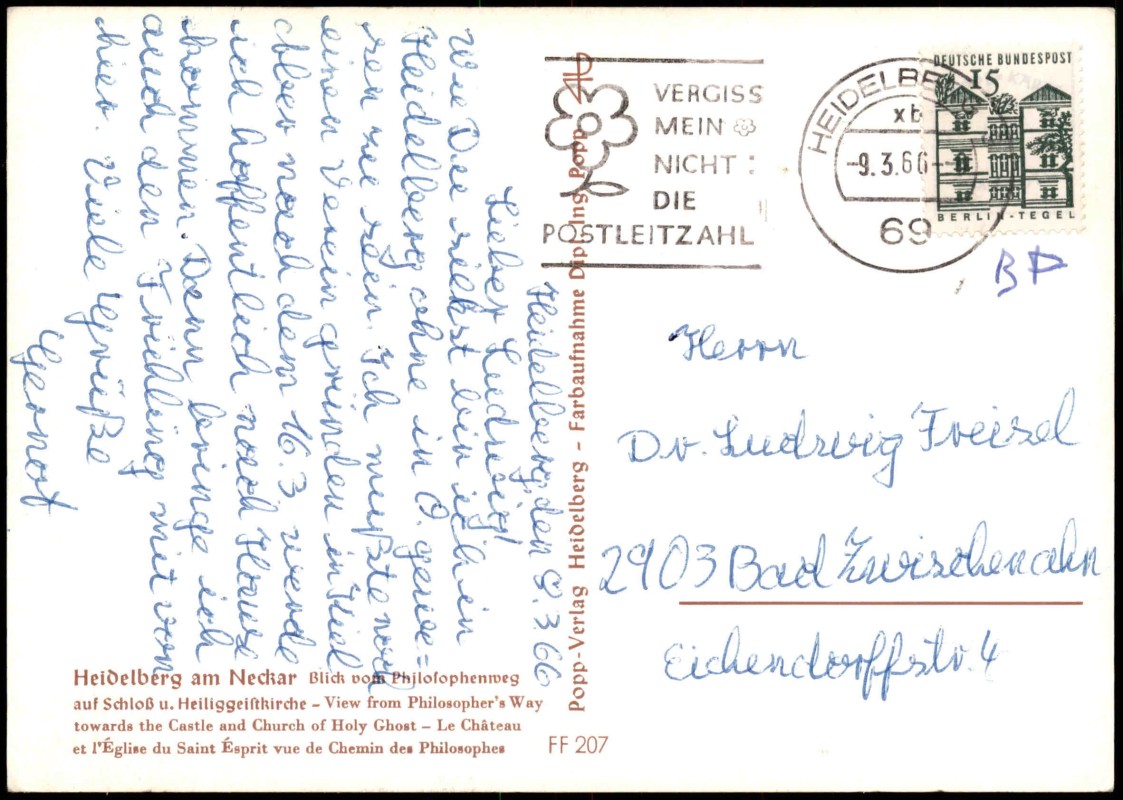 Heidelberg, den 8.3.66
Lieber Ludwig!
Wie Du siehst bin ich in
Heidelberg ohne in O. gewe=
sen zu sein. Ich mußte noch
einen Verein gründen in Kiel
aber nach dem 16.3 werde
ich hoffentlich nach Hause
kommen. Dann bringe ich
auch den Frühling mit von
hier. Viele Grüße
Gernot
Heidelberg am Neckar Blick vom Philosophenweg
auf Schloß u. Heiliggeistkirche – View from Philosopher's Way
towards the Castle and Church of Holy Ghost – Le Château
et l'Église du Saint Ésprit vue de Chemin des Philosophes
FF 207
Popp-Verlag Heidelberg – Farbaufnahme Dipl. Ing. Popp
VERGISS
MEIN
NICHT:
DIE
POSTLEITZAHL
HEIDELBERG
xb
-9.3.66-
69
DEUTSCHE BUNDESPOST
15
BERLIN-TEGEL
BP
Herrn
Dr. Ludwig Freisel
2903 Bad Zwischenahn
Eichendorffstr. 4